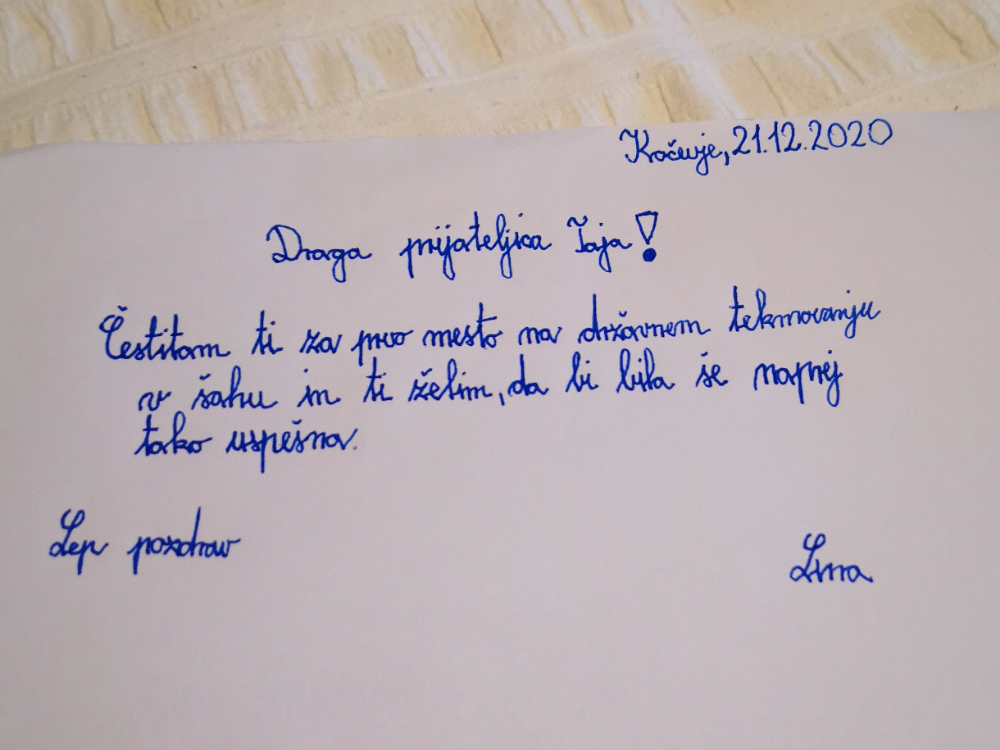 Kočevje, 21.12.2020
Draga prijateljica Taja!
Čestitam ti za prvo mesto na državnem tekmovanju
v šahu in ti želim, da bi bila še naprej
tako uspešna.
Lep pozdrav
Lina